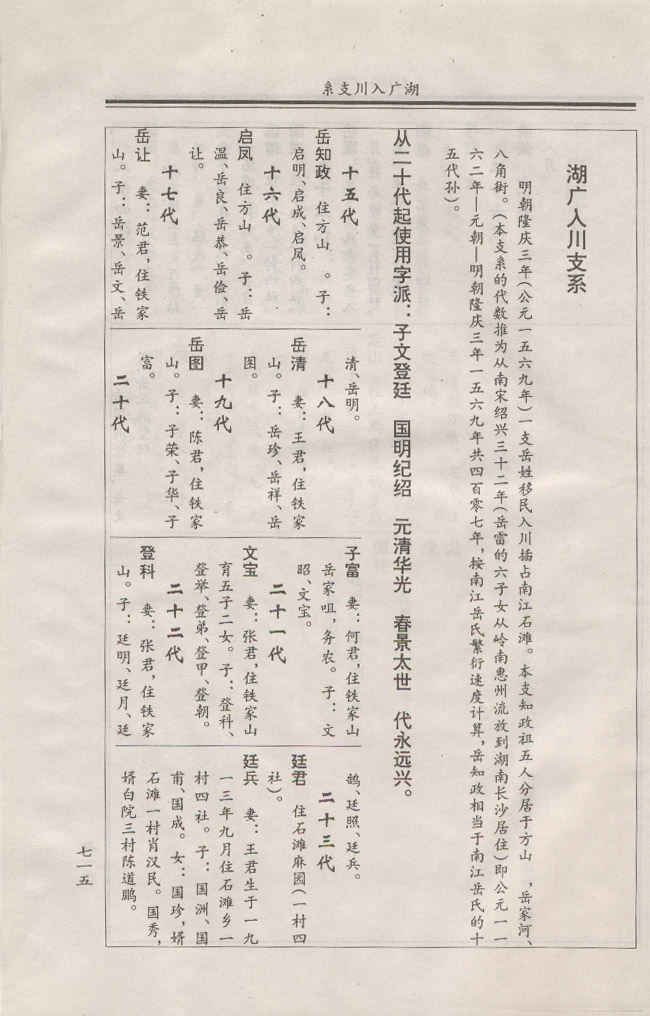 湖广入川支系
湖广入川支系
明朝隆庆三年(公元一五六九年)一支岳姓移民入川插占南江石滩。本支知政祖五人分居于方山　,岳家河、
八角街。(本支系的代数推为从南宋绍兴三十二年(岳雷的六子女从岭南惠州流放到湖南长沙居住)即公元一一
六二年—元朝—明朝隆庆三年一五六九年共四百零七年,按南江岳氏繁衍速度计算,岳知政相当于南江岳氏的十
五代孙)。
从二十代起使用字派:子文登廷　国明纪绍　元清华光　春景太世　代永远兴。
十五代
岳知政　住方山　。子:
启明、启成、启凤。
十六代
启凤　住方山　。子:岳
温、岳良、岳恭、岳俭、岳
让。
十七代
岳让　妻:范君,住铁家
山。子:岳景、岳文、岳
清、岳明。
十八代
岳清　妻:王君,住铁家
山。子:岳珍、岳祥、岳
图。
十九代
岳图　妻:陈君,住铁家
山。子:子荣、子华、子
富。
二十代
子富　妻:何君,住铁家山
岳家咀,务农。子:文
昭、文宝。
二十一代
文宝　妻:张君,住铁家山
育五子二女。子:登科、
登举、登弟、登甲、登朝。
二十二代
登科　妻:张君,住铁家
山。子:廷明、廷月、廷
鹄、廷照、廷兵。
二十三代
廷君　住石滩麻园(一村四
社)。
廷兵　妻:王君生于一九
一三年九月住石滩乡一
村四社。子:国洲、国
甫、国成。女:国珍,婿
石滩一村肖汉民。国秀,
婿白院三村陈道鹏。
七一五